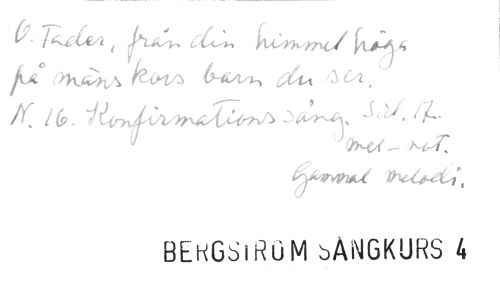 O. Fader, från din himmel höga
på människors barn du ser.
N. 16. Konfirmationssång. Sid. 17.
mel-not.
Gammal melodi.
BERGSTRÖM SÅNGKURS 4